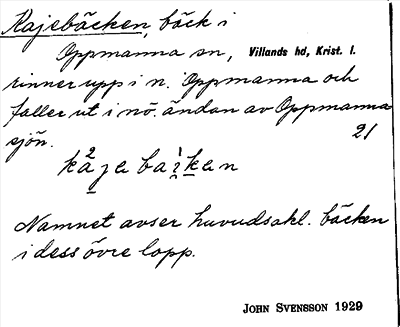 Kajebäcken, bäck i
Oppmanna sn, Villands hd, Krist. l.
rinner upp i n. Oppmanna och
faller ut i nö. ändan av Oppmanna
sjön. 21
Namnet avser huvudsakl. bäcken
i dess övre lopp.
JOHN SVENSSON 1929